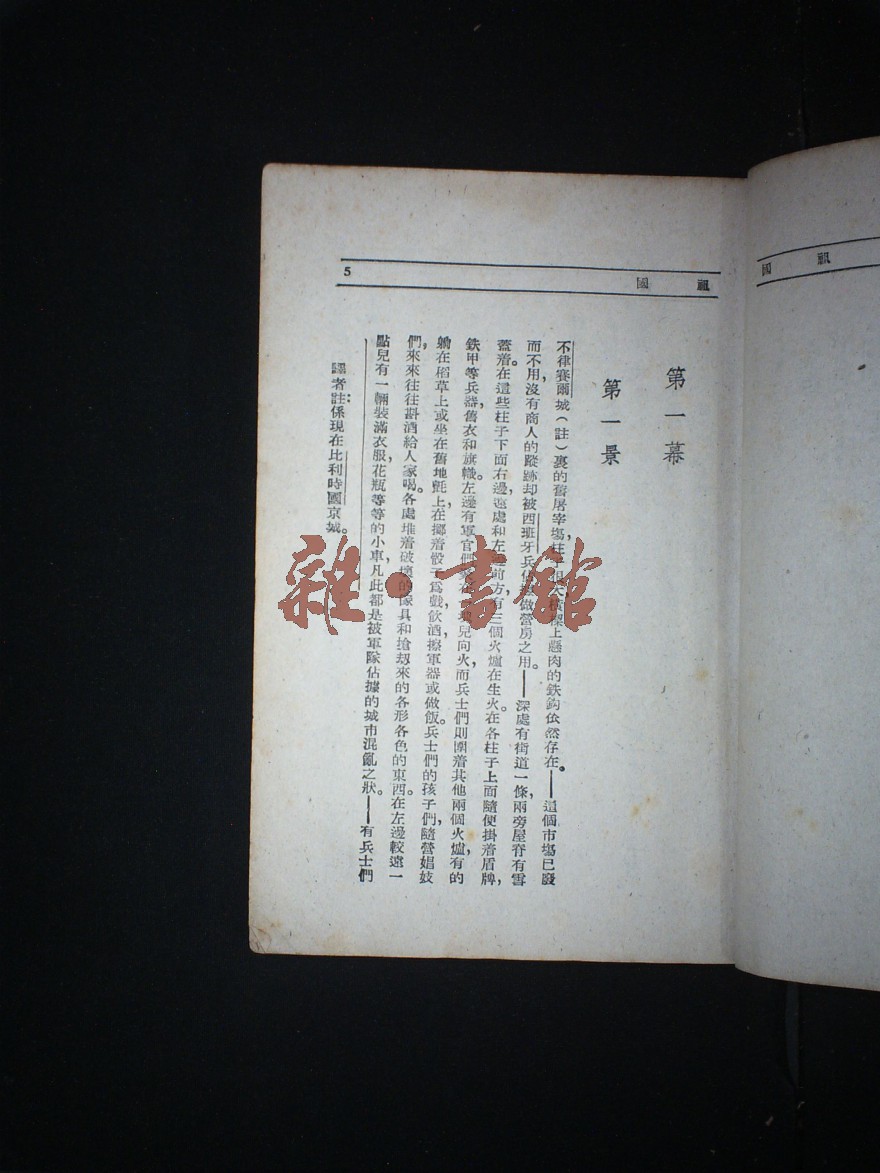 祖國
5
祖國
第一幕
第一景
不律賽爾城(註)裏的舊屠宰場柱上懸肉的鉄鈎依然存在。——這個市場已廢
而不用,沒有商人的蹤跡却被西班牙兵做營房之用。——深處有街道一條,兩旁屋脊有雪
蓋着。在這些柱子下面右邊,遠處和左邊前方有三個火爐在生火。在各柱子上面隨便掛着盾牌,
鉄甲等兵器,舊衣和旗幟。左邊有軍官們兒向火,而兵士們則圍着其他兩個火爐,有的
躺在稻草上或坐在舊地氈上,在擲着骰子爲戲,飲酒,擦軍器或做飯。兵士們的孩子們,隨營娼妓
們,來來往往斟酒給人家喝。各處堆着破壞的傢具和搶刼來的各形各色的東西。在左邊較遠一
點兒有一輛裝滿衣服花瓶等等的小車。凡此都是被軍隊佔據的城市混亂之狀。——有兵士們
譯者註:係現在比利時國京城。
雜·書館